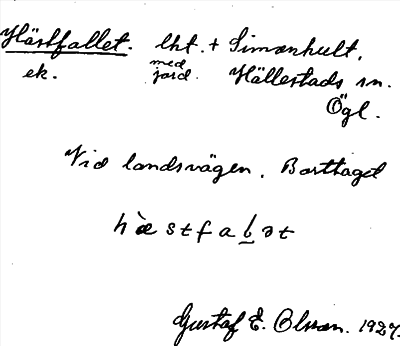 Hästfallet. lht. + Simonhult,
ek. med jord. Hällestads sn.
Ögl.
Vid landsvägen. Borttaget
h`æstfaḷət
Gustaf E. Olsson. 1927.